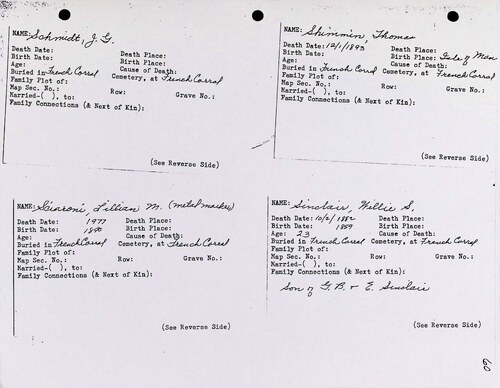 NAME: Schmidt, J. G.
Death Date: Death Place:
Birth Date: Birth Place:
Age: Cause of Death:
Buried in French Corral Cemetery, at French Corral
Family Plot of:
Map Sec. No.: Row: Grave No.:
Married-( ), to:
Family Connections (& Next of Kin):
(See Reverse Side)
NAME: Shimmin, Thomas
Death Date: 12/1/1895 Death Place:
Birth Date: Birth Place: Isle of Man
Age: Cause of Death:
Buried in French Corral Cemetery, at French Corral
Family Plot of:
Map Sec. No.: Row: Grave No.:
Married-( ), to:
Family Connections (& Next of Kin):
(See Reverse Side)
NAME: Giaroni, Lillian M. (metal marker)
Death Date: 1977 Death Place:
Birth Date: 1890 Birth Place:
Age: Cause of Death:
Buried in French Corral Cemetery, at French Corral
Family Plot of:
Map Sec. No.: Row: Grave No.:
Married-( ), to:
Family Connections (& Next of Kin):
(See Reverse Side)
NAME: Sinclair, Willie S.
Death Date: 10/2/1882 Death Place:
Birth Date: 1859 Birth Place:
Age: 23 Cause of Death:
Buried in French Corral Cemetery, at French Corral
Family Plot of:
Map Sec. No.: Row: Grave No.:
Married-( ), to:
Family Connections (& Next of Kin):
Son of G. B. & E. Sinclair
(See Reverse Side)
60